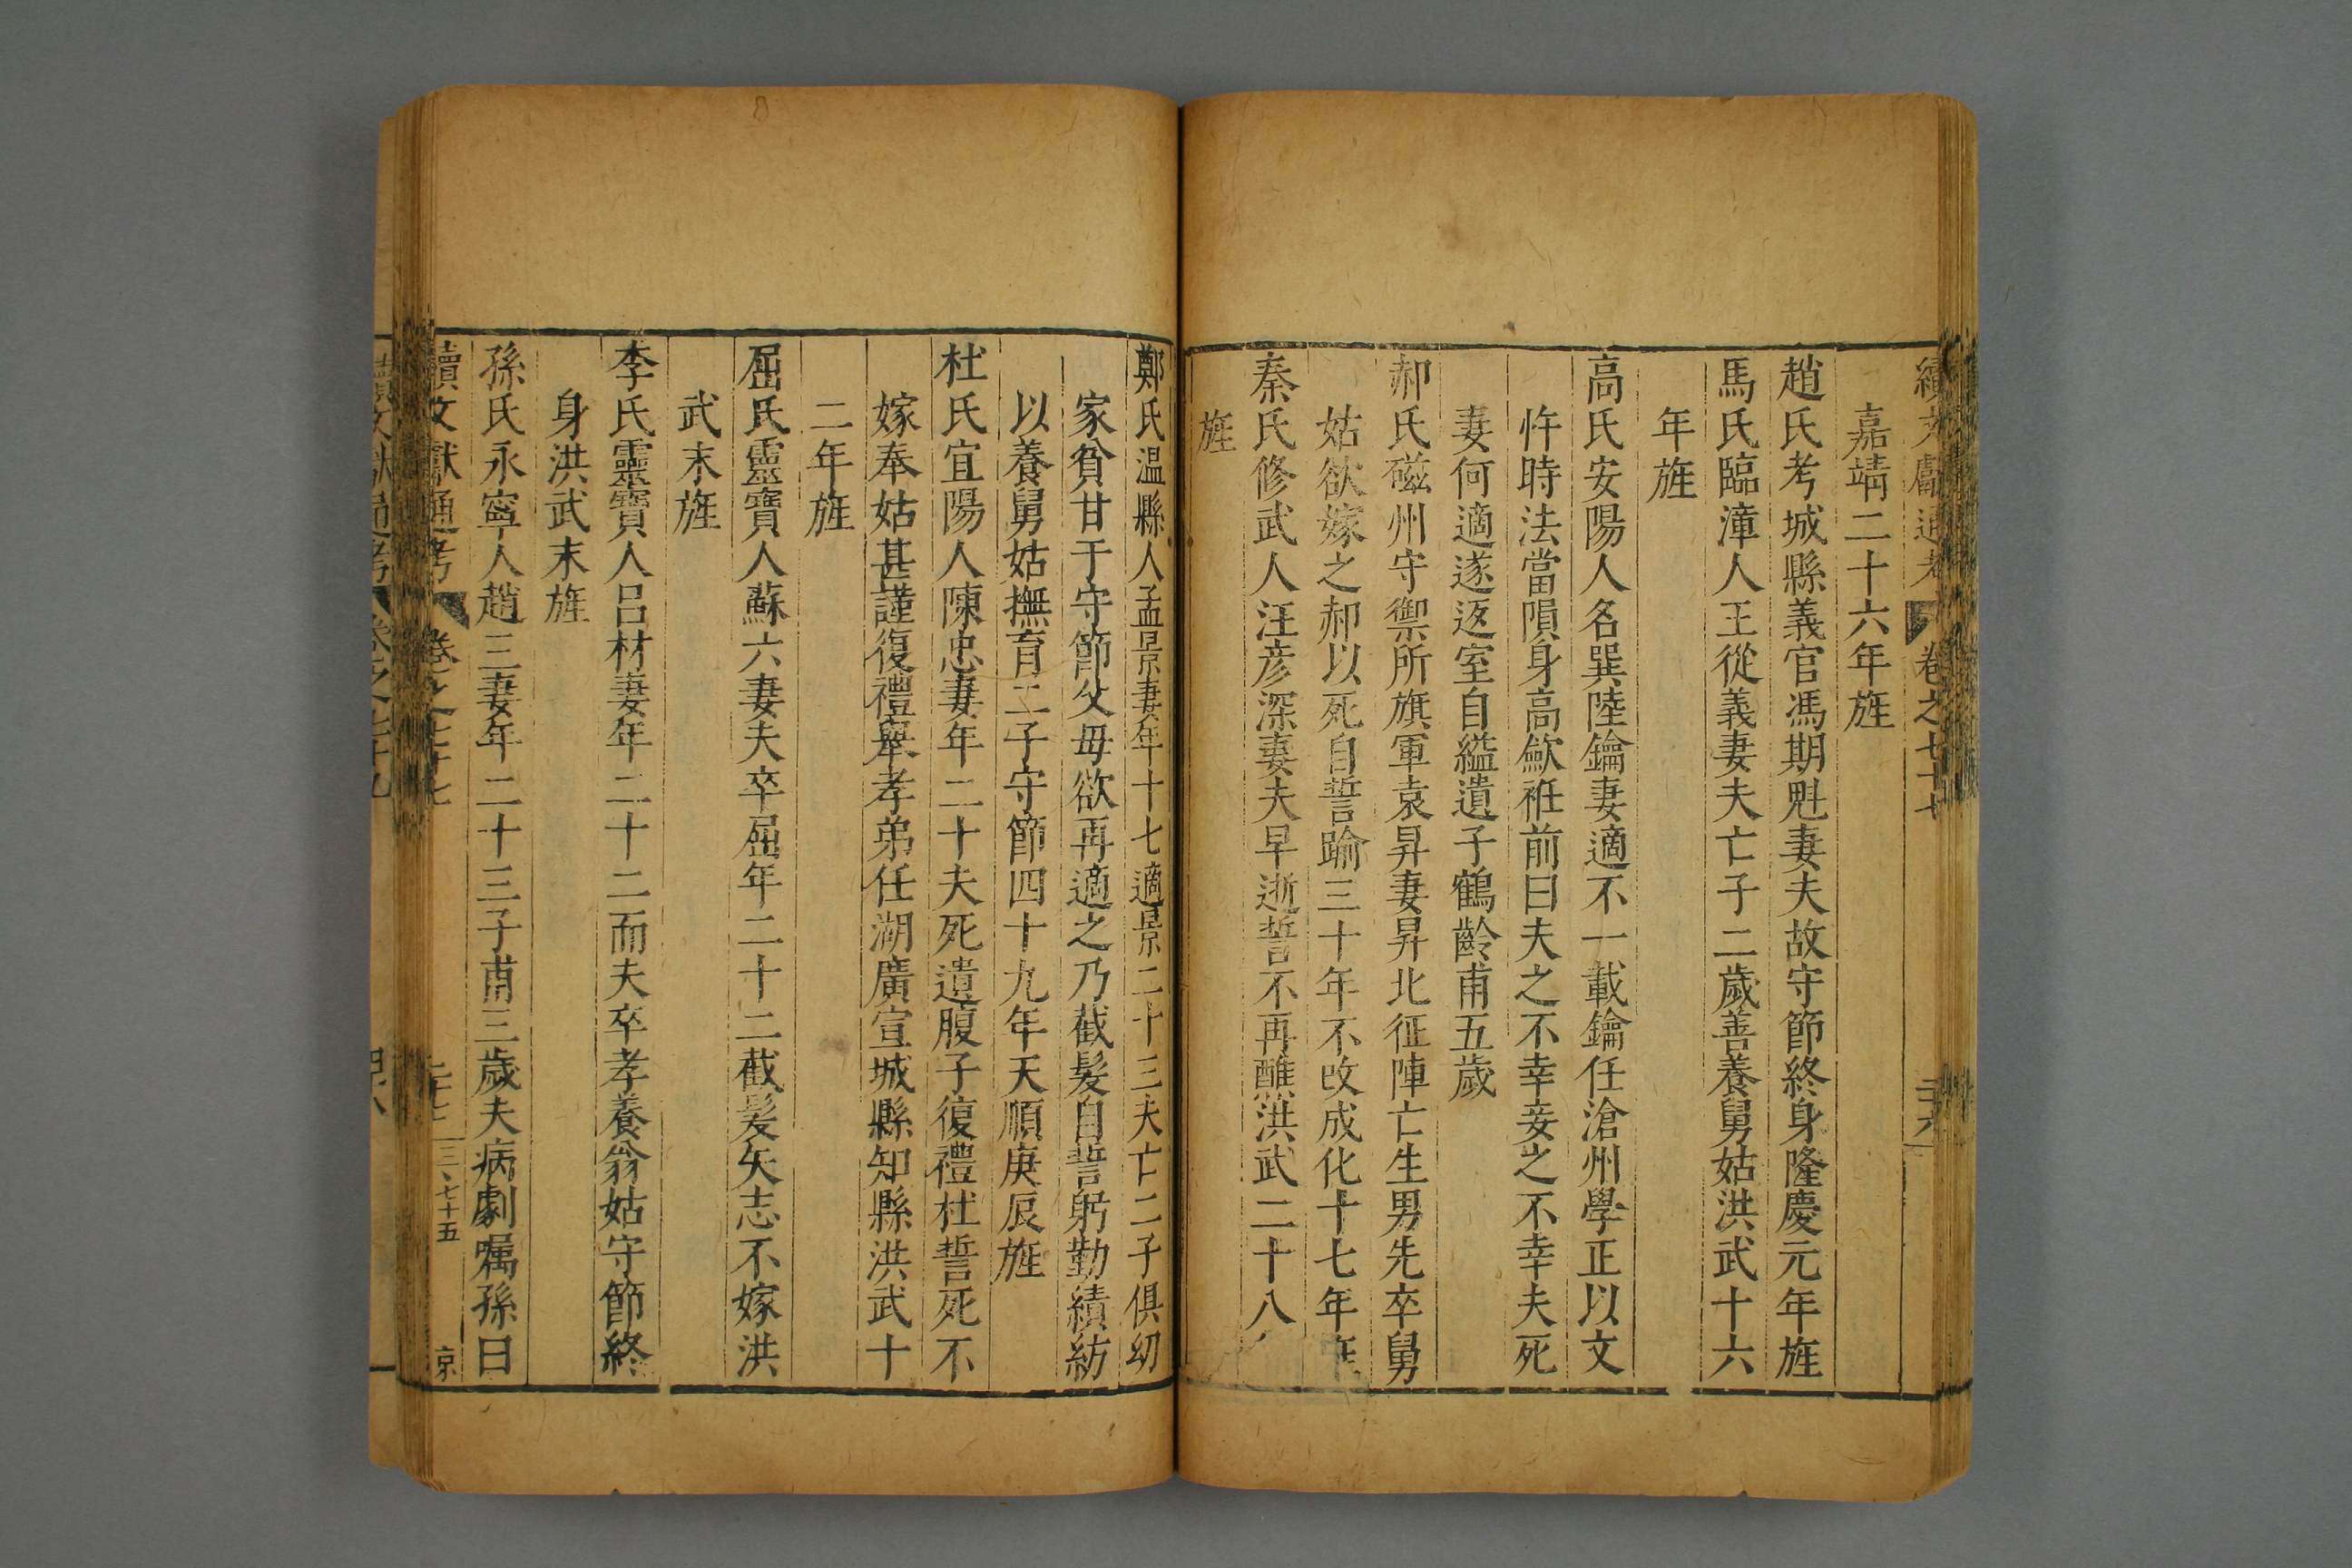 續文獻通考 卷之七十七 三十六
嘉靖二十六年旌
趙氏考城縣義官馮期魁妻夫故守節終身隆慶元年旌
馬氏臨漳人王從義妻夫亡子二歲善養舅姑洪武十六
年旌
高氏安陽人名巽陸鑰妻適不一載鑰任滄州學正以文
忤時法當隕身高歛袵前曰夫之不幸妾之不幸夫死
妻何適遂返室自縊遺子鶴齡甫五歲
郝氏磁州守禦所旗軍袁昇妻昇北征陣亡生男先卒舅
姑欲嫁之郝以死自誓踰三十年不改成化十七年旌
秦氏修武人汪彦深妻夫早逝誓不再醮洪武二十八
旌
鄭氏溫縣人孟景妻年十七適景二十三夫亡二子俱幼
家貧甘于守節父毋欲再適之乃截髮自誓躬勤績紡
以養舅姑撫育二子守節四十九年天順庚辰旌
杜氏宜陽人陳忠妻年二十夫死遺腹子復禮杜誓死不
嫁奉姑甚謹復禮舉孝弟任湖廣宣城縣知縣洪武十
二年旌
屈氏靈寶人蘇六妻夫卒屈年二十二截髮矢志不嫁洪
武末旌
李氏靈寶人呂材妻年二十二而夫卒孝養翁姑守節終
身洪武末旌
孫氏永寧人趙三妻年二十三子甫三歲夫病劇嘱孫曰
續文獻通考 卷之七十七 三十七 三、七十五 京
續文獻通考 卷之七十九 四八